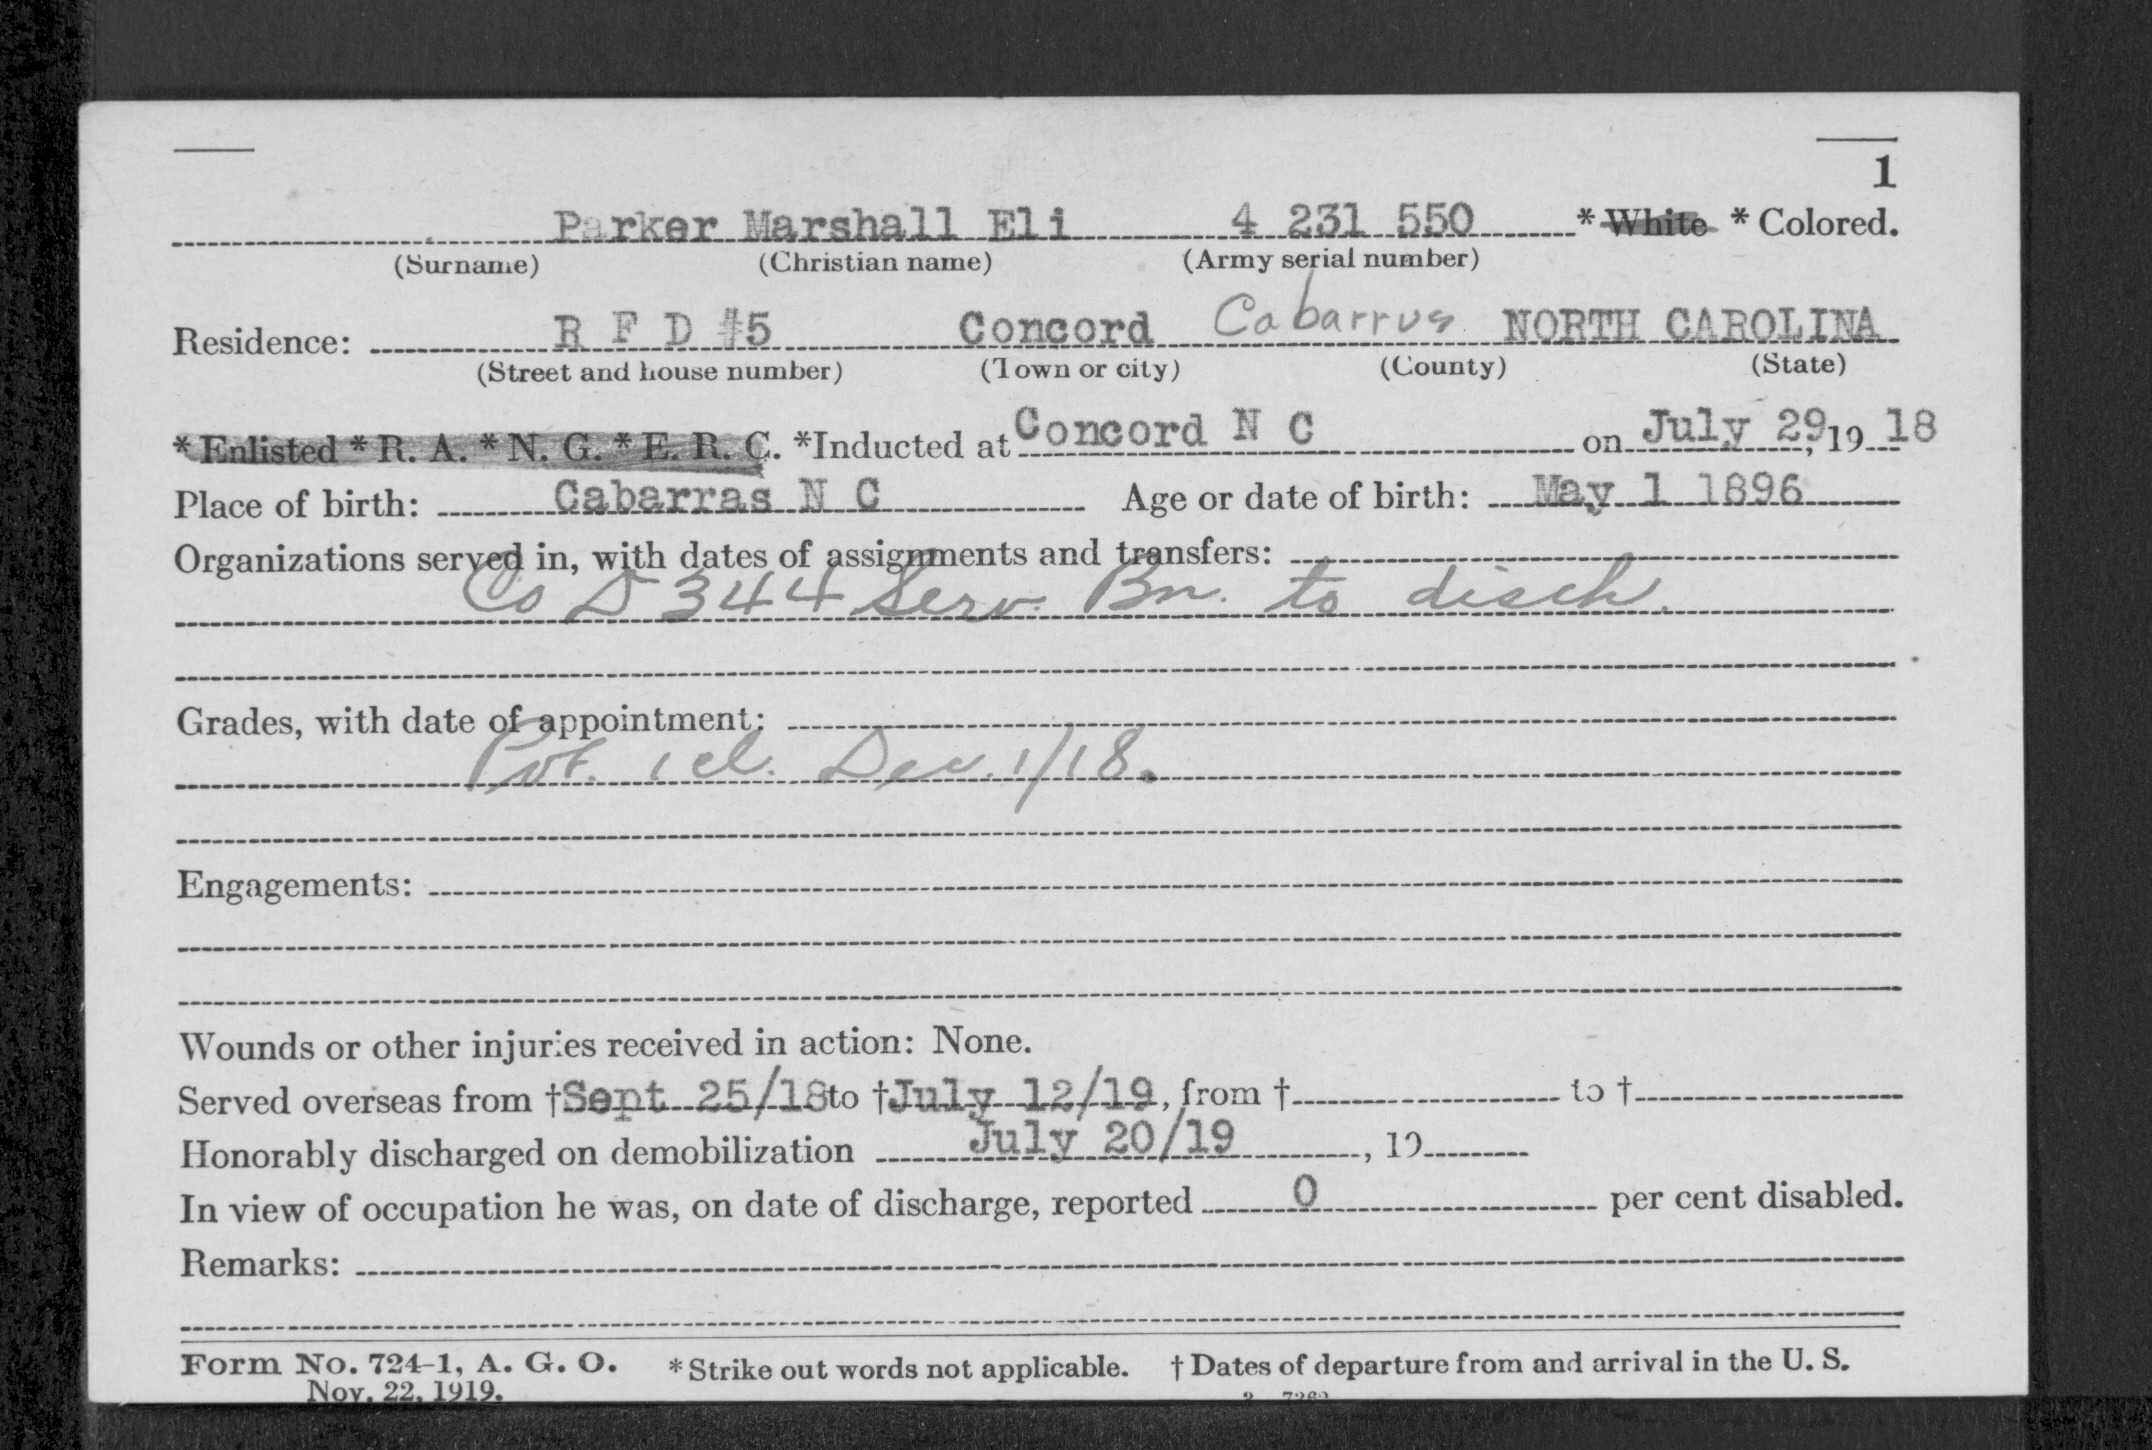 1
Parker Marshall Eli 4 231 550 * White * Colored.
(Surname) (Christian name) (Army serial number)
Residence: R F D #5 Concord Cabarrus NORTH CAROLINA
(Street and house number) (Town or city) (County) (State)
* Enlisted * R. A. * N. G. * E. R. C. *Inducted at Concord N C on July 29, 19 18
Place of birth: Cabarras N C Age or date of birth: May 1 1896
Organizations served in, with dates of assignments and transfers:
Co D 344 Serv. Bn. to disch.
Grades, with date of appointment:
Pvt. 1 cl. Dec. 1/18.
Engagements:
Wounds or other injuries received in action: None.
Served overseas from †Sept 25/18 to †July 12/19, from † to †
Honorably discharged on demobilization July 20/19, 19
In view of occupation he was, on date of discharge, reported 0 per cent disabled.
Remarks:
Form No. 724-1, A. G. O. * Strike out words not applicable. † Dates of departure from and arrival in the U. S.
Nov. 22, 1919.